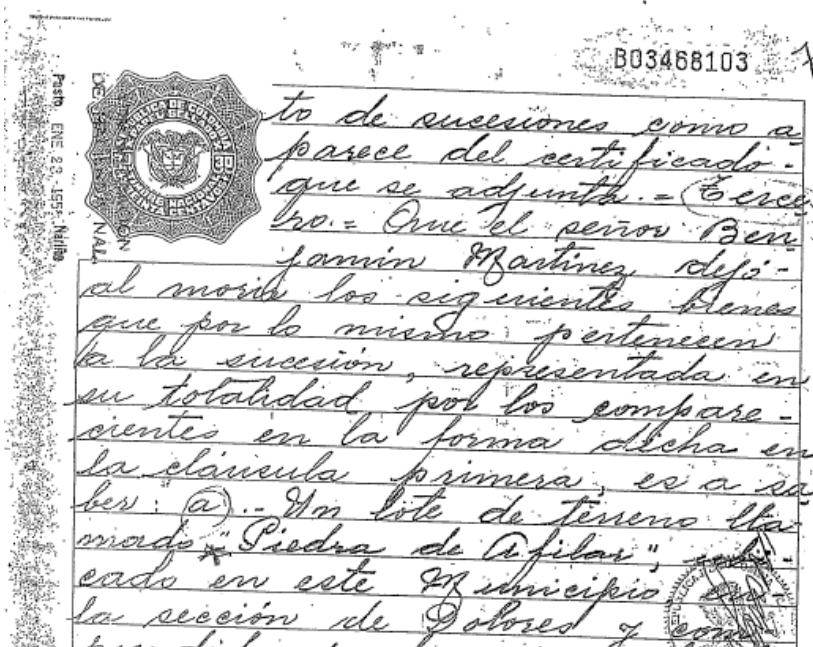 B03468103
Pasto ENE 23 195 Nariño
REPUBLICA DE COLOMBIA
PAPEL SELLADO
30
TIMBRE NACIONAL
TREINTA CENTAVOS
to de sucesiones como a
parece del certificado -
que se adjunta.= (Terce
ro.= Que el señor Ben
jamín Martinez dejó -
al morir los siguientes bienes
que por lo mismo pertenecen
a la sucesión, representada en
su totalidad por los compare -
cientes en la forma dicha en
la cláusula primera, es a sa
ber: (a).- Un lote de terreno lla
mado "Piedra de Afilar", ubi-
cado en este Municipio en
la sección de Dolores y com